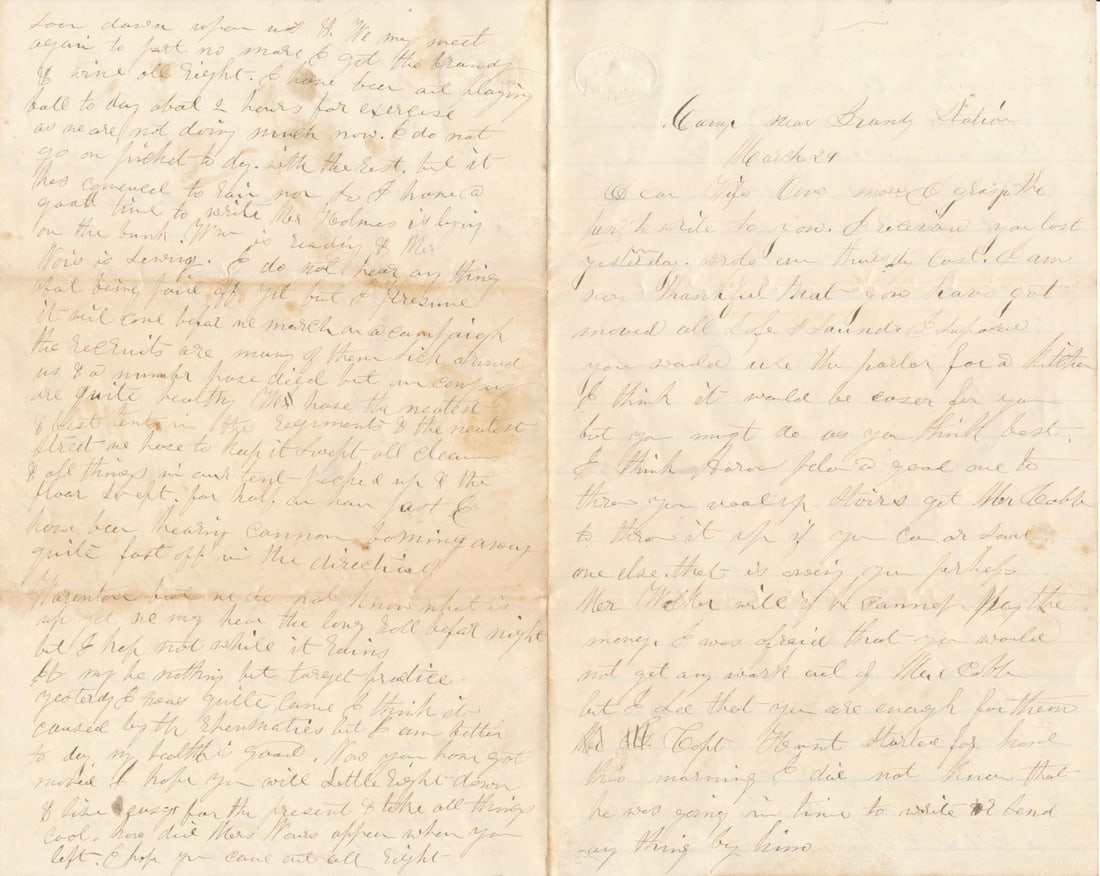 soon dawn upon us & We my meet
again to part no more I got the brandy
& wine all right. I have been out playing
ball to day about 2 hours for exercise
as we are not doing much now. I do not
go on picket to dy. with the rest. but it
has comenced to rain now So I have a
good time to write Mr Holmes is lying
on the bunk. Wm is reading & Mr
is Sewing. I do not hear any thing
about being paid off yet but I presume
it will come befor we march on a campaign
the recruits are many of them Sick around
us & a number have died but our company
are quite healthy We have the neatest
& best tents in the Regiments & the neatest
Street we have to keep it Swept all clean
& all things in our tent packed up & the
floor Swept. for half an hour past I
have been hearing cannon boming away
quite fast off in the direction of
Warenton but we do not know what is
up yet we my hear the long roll befor night
but I hop not while it rains
It my be nothing but target practice
yesterdy I was quite lame I think it
caused by th Rheumatics but I am better
to dy. my health is good. Now you have got
moved I hope you will Settle right down
& live easy for the present & take all things
cool. how did Mrs appear when you
left. I hop you came out all right
Camp near Brandy Station
March 29
Dear Wife Once more I grasp the
pen to write to you. I received you last
yesterday. wrote on thursdy last. I am
very thankful that you have got
moved all Safe & Sound & I supose
you would use the parlor for a kitchen
I think it would be easer for you
but you must do as you think best.
I think plan a good one to
throw you wood up Stairs get Mr Cobb
to throw it up if you can or Some
one else. that is owing you perhaps
Mr will if he cannot pay the
money. I was afraid that you would
not get any work out of Mr Cobb
but I See that you are enough for them
Capt Hunt Started for home
this morning I did not know that
he was going in time to write or Send
any thing by him